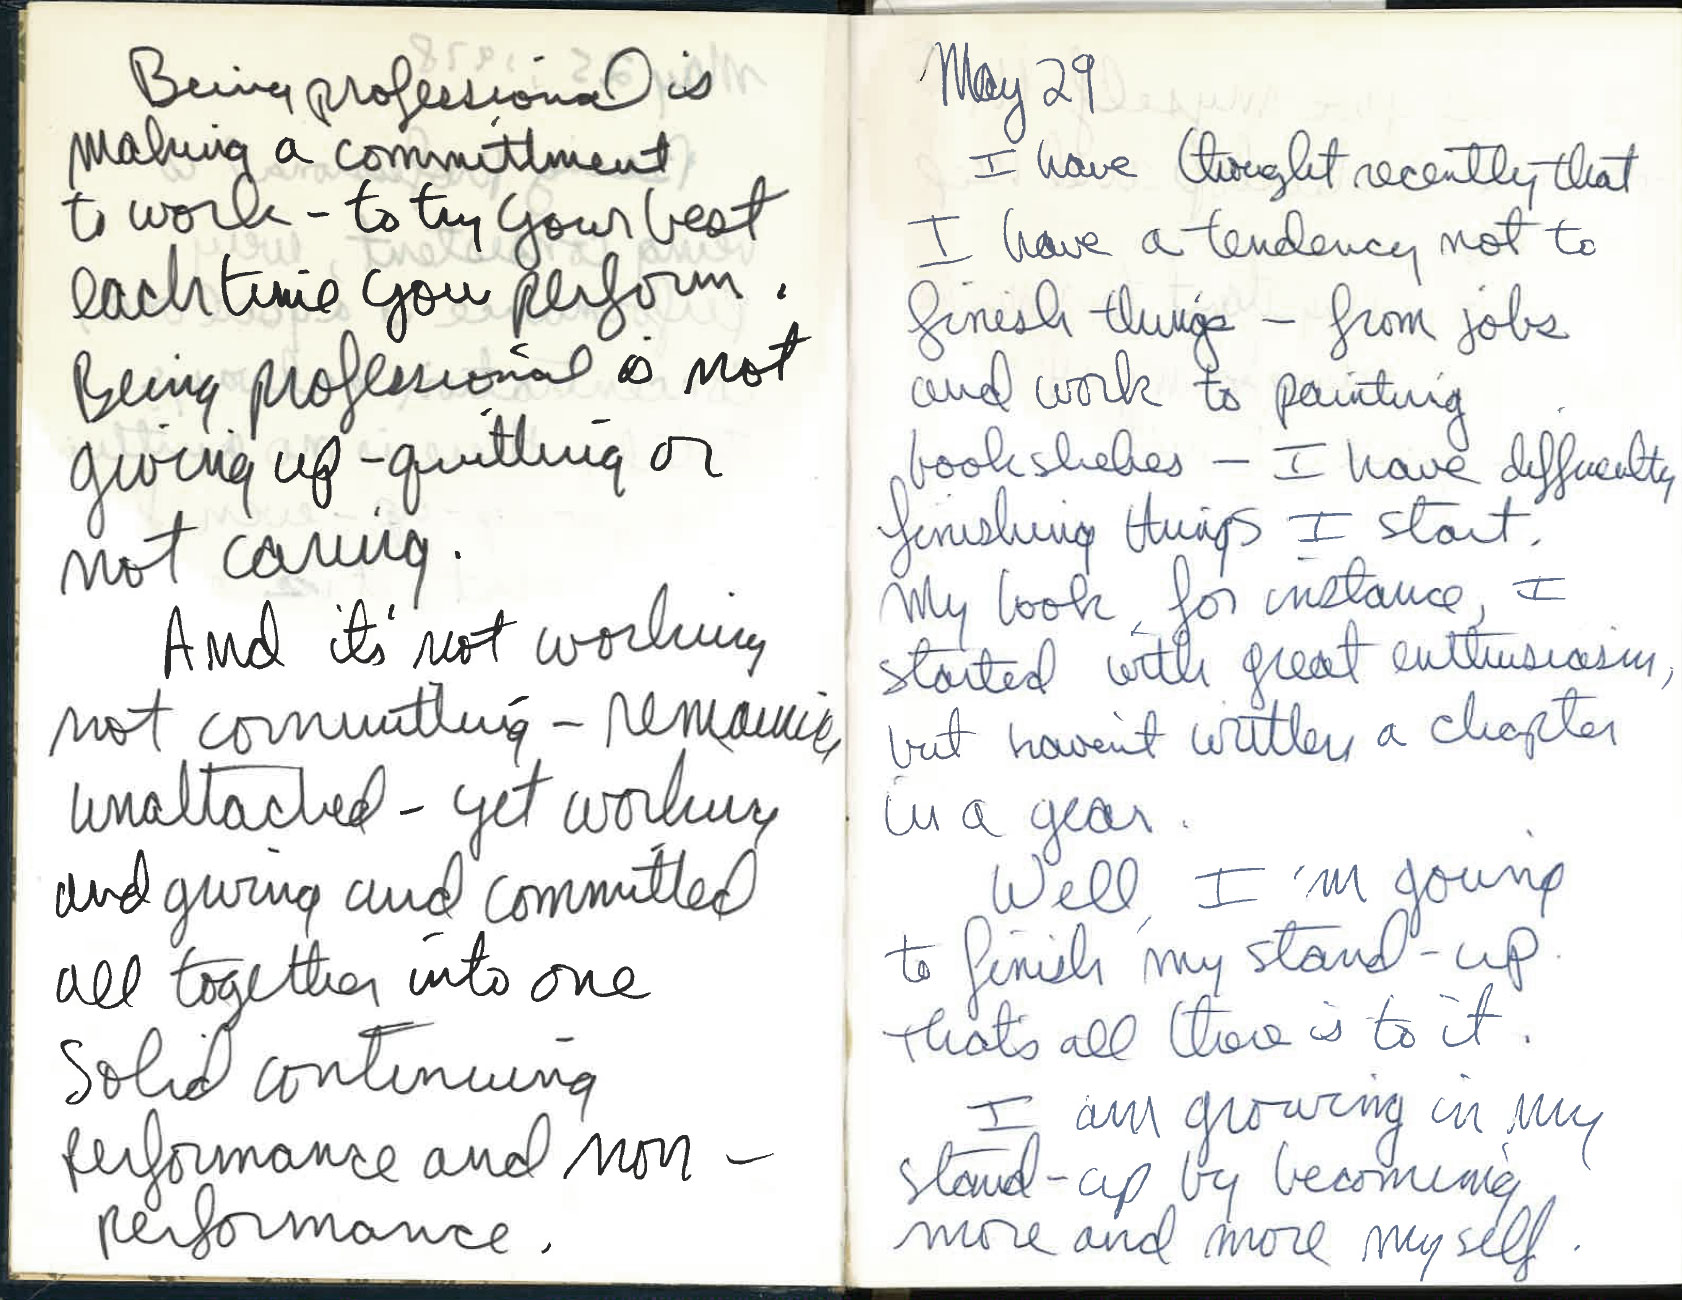 Being professional is
making a committment
to work - to try your best
each time you perform.
Being professional is not
giving up - quitting or
not caring.
And it's not working
not committing - remaining
unattached - yet working
and giving and committed
all together into one
Solid continuing
performance and non -
performance.
May 29
I have thought recently that
I have a tendency not to
finish things - from jobs
and work to painting
bookshelves - I have difficulty
finishing things I start.
My book, for instance, I
started with great enthusiasm,
but haven't written a chapter
in a year.
Well, I'm going
to finish my stand-up.
That's all there is to it.
I am growing in my
stand-up by becoming
more and more myself.